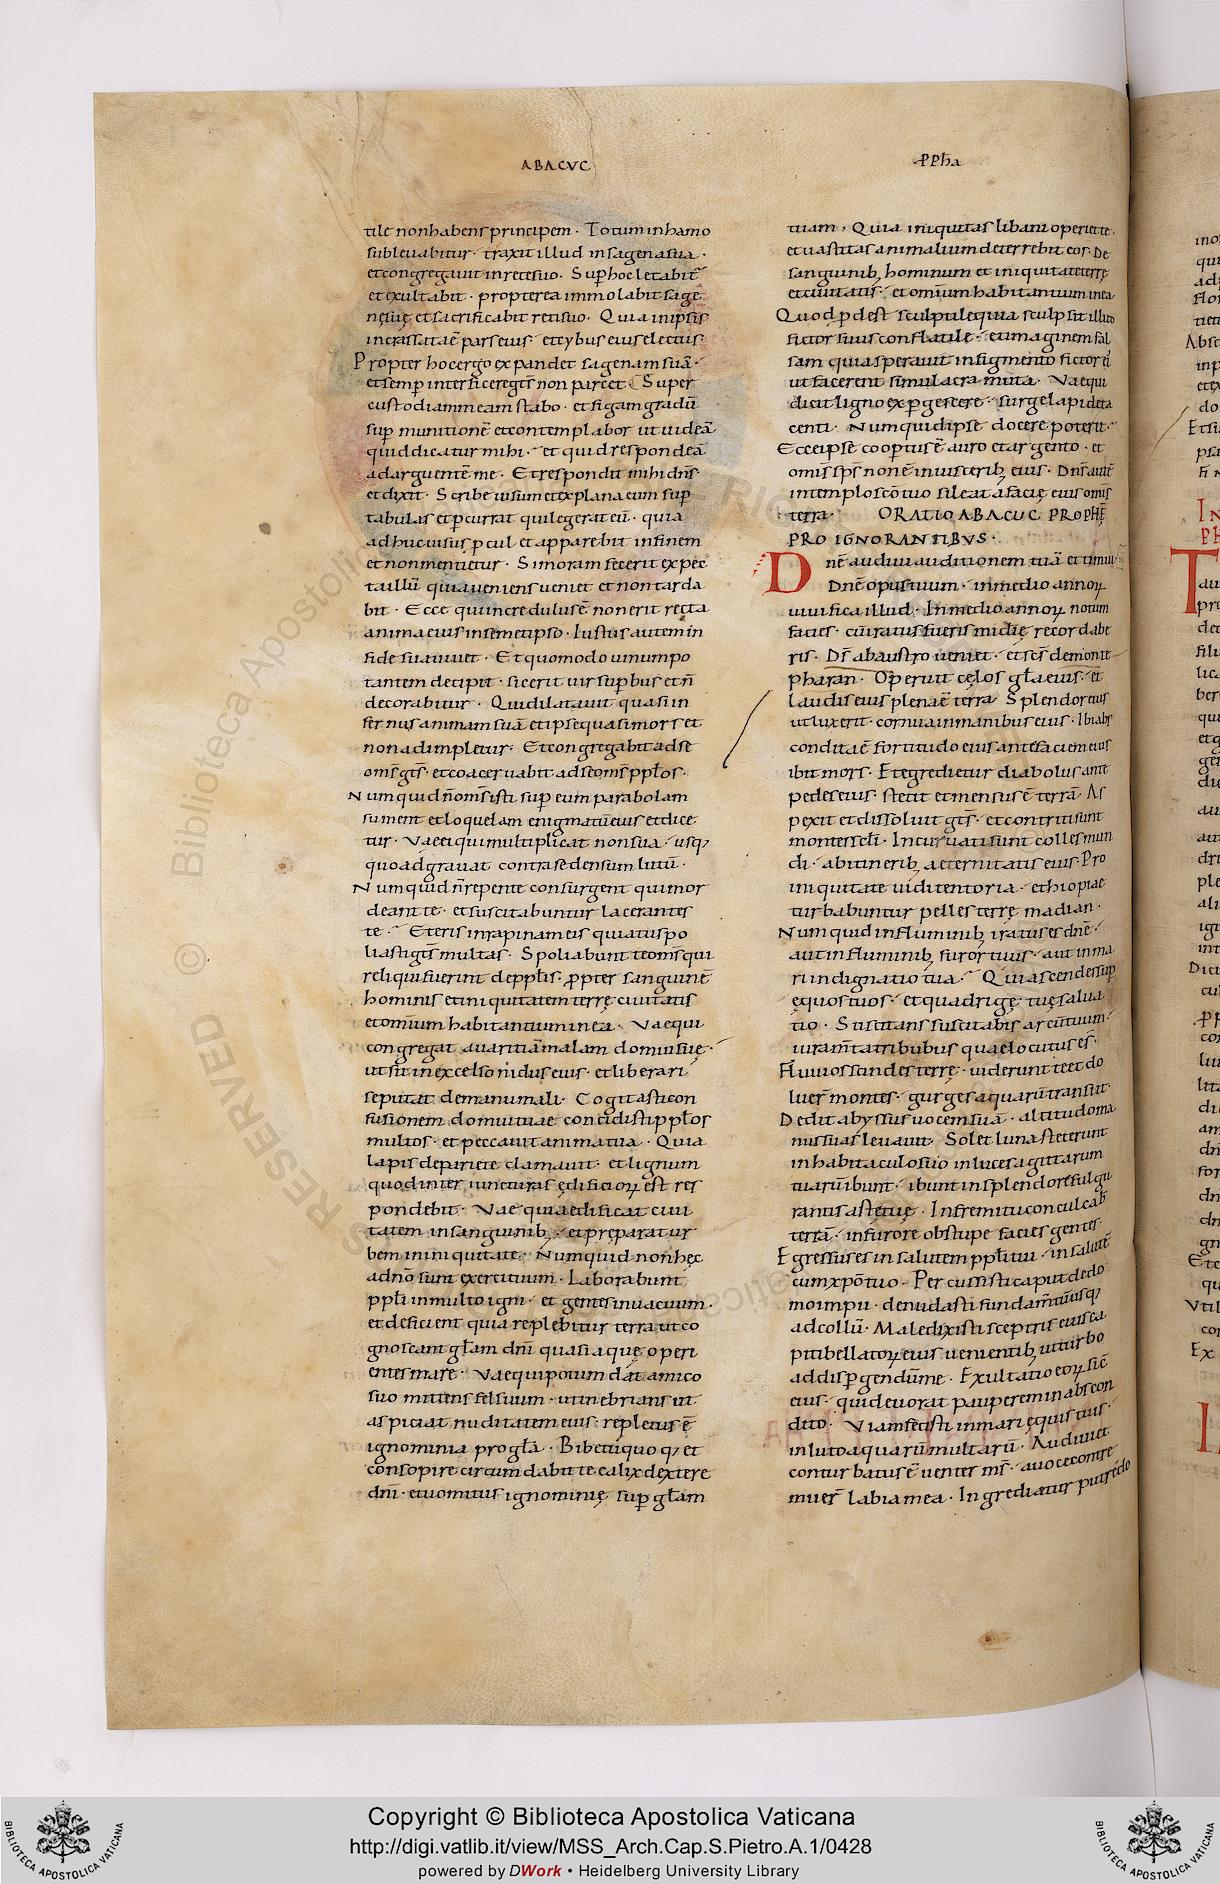 ABACVC
PPħa
tile non habens principem · Totum in hamo
subleuabitur · traxit illud in sagena sua ·
et congregauit in rete suo · Sup hoc letabit̄
et exultabit · propterea immolabit sage
nęsuę et sacrificabit reti suo · Quia in ipsis
incrassata ē pars eius · et cybus eius electus
Propter hoc ergo expandet sagenam suā ·
et semp interficere gēs non parcet Super
custodiam meam stabo · et figam gradū
sup munitionē et contemplabor ut uideā
quid dicatur mihi · et quid respondeā
ad arguentē me · Et respondit mihi dn̄s
et dixit · Scribe uisum et explana eum sup
tabulas et pcurrat qui legerat eū · quia
adhuc uisus pcul et apparebit in finem
et non mentietur · Si moram fecerit expec
ta illū quia ueniens ueniet et non tarda
bit · Ecce qui incredulus ē non erit recta
anima eius in semetipso · Iustus autem in
fide sua uiuet · Et quomodo uinum po
tantem decipit · sic erit uir supbus et ñ
decorabitur · Qui dilatauit quasi in
fernus animam suā et ipse quasi mors et
non adimpletur · Et congregabit ad se
om̄s gēs · et coaceruabit ad se om̄s pplōs ·
Numquid ñ om̄s isti sup eum parabolam
sument et loquelam enigmatū eius et dice
tur · Vae ei qui multiplicat non sua · usq;
quo adgrauat contra se densum lutū ·
Numquid ñ repente consurgent qui mor
deant te · et suscitabuntur lacerantes
te · Et eris in rapinam eis quia tu spo
liasti gēs multas · Spoliabunt te om̄s qui
reliqui fuerint de pplīs · ppter sanguinē
hominis et iniquitatem terrę ciuitatis
et omīum habitantium in ea · Vae qui
congregat auaritiā malam domui suę ·
ut sit in excelso nidus eius · et liberari
se putat de manu mali · Cogitasti con
fusionem domui tuae concidisti pplōs
multos · et peccauit anima tua · Quia
lapis de pariete clamauit · et lignum
quod inter iuncturas ędificioꝝ est res
pondebit · Vae qui aedificat ciui
tatem in sanguinib; · et preparat ur
bem in iniquitate · Numquid non hęc
a dnō sunt exercituum · Laborabunt
pplī in multo igni · et gentes in uacuum ·
et deficient quia replebitur terra ut co
gnoscant glām dnī quasi aquę operi
entes mare · Vae qui potum dat amico
suo mittens fel suum · ut inebrians ut
aspiciat nuditatem eius · repletus ē
ignominia pro glā · Bibe tu quoq; et
consopire circumdabit te calix dexterę
dnī · et uomitus ignominię sup glām
tuam · Quia iniquitas libani operiet te ·
et uastitas animalium deterrebit eos · De
sanguinib; hominum et iniquitate terrę
et ciuitatis · et omīum habitantium in ea
Quod pdest sculptile quia sculpsit illud
fictor suus conflatile · et imaginem fal
sam quia sperauit in figmento fictor ei
ut facerent simulacra muta · Vae qui
dicit ligno expgescere · surge lapidi ta
centi · Numquid ipse docere poterit ·
Ecce ipse coopertus ē auro et argento · et
omīs sps non ē in uiscerib; eius · Dns autē
in templo scō suo sileat a facię eius omīs
terra · ORATIO ABACVC PROPHĘ
PRO IGNORANTIBVS ·
Dnē audiui auditionem tuā et timui
Dnē opus tuum · in medio annoꝝ
uiuifica illud · In medio annoꝝ notum
facies · cū iratus fueris midię recordabe
ris · Ds ab austro ueniet · et scs de monte
pharan · Operuit cęlos glā eius · et
laudis eius plena ē terra Splendor eius
ut lux erit · cornua in manibus eius · Ibi abs
condita ē fortitudo eius ante faciem eius
ibit mors · Et egredietur diabolus ante
pedes eius · stetit et mensus ē terrā · As
pexit et dissoluit gēs · et contriti sunt
montes sclī · Incuruati sunt colles mun
di · ab itinerib; aeternitatis eius · Pro
iniquitate uidi tentoria · ethiopiae
turbabuntur pelles terrę madian ·
Numquid in fluminib; iratus es dnē ·
aut in fluminib; furor tuus · aut in ma
ri indignatio tua · Qui ascendes sup
ęquos tuos · et quadrigę tuę salua
tio · Suscitans suscitabis arcū tuum ·
iuram̄ta tribubus quae locutus es ·
Fluuios scindes terrę · uiderunt te et do
luer̄ montes · gurges aquarū transiit ·
Dedit abyssus uocem suā · altitudo ma
nus suas leuauit · Sol et luna steterunt
in habitaculo suo in luce sagittarum
tuarū ibunt · ibunt in splendore fulgu
rantis astę tuę · In fremitu conculcab
terrā · in furore obstupe facies gentes
Egressus es in salutem pplī tui · in salutē
cum xpō tuo · Percussisti caput de do
mo impii · denudasti fundam̄tū usq;
ad collū · Maledixisti sceptris eius ca
piti bellatoꝝ eius uenientib; ut turbo
ad dispgendū me · Exultatio eoꝝ sic̄
eius · qui deuorat pauperem in abscon
dito · Viam fecisti in mari ęquis tuis ·
in luto aquarū multarū · Audiui et
conturbatus ē uenter m̄s · a uoce contre
muer̄ labia mea · Ingrediatur putredo
Copyright © Biblioteca Apostolica Vaticana
http://digi.vatlib.it/view/MSS_Arch.Cap.S.Pietro.A.1/0428
powered by DWork • Heidelberg University Library